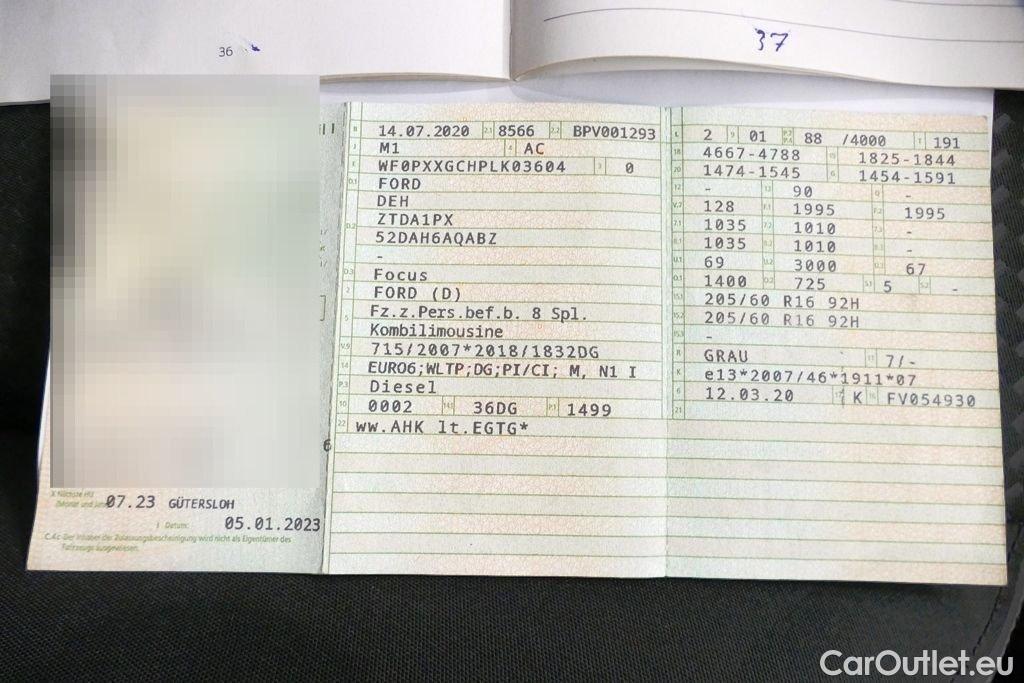 36
37
B 14.07.2020 2.1 8566 2.2 BPV001293
J M1 4 AC
E WF0PXXGCHPLK03604 3 0
D.1 FORD
DEH
D.2 ZTDA1PX
52DAH6AQABZ
-
D.3 Focus
2 FORD (D)
5 Fz.z.Pers.bef.b. 8 Spl.
Kombilimousine
V.9 715/2007*2018/1832DG
14 EURO6;WLTP;DG;PI/CI; M, N1 I
P.3 Diesel
10 0002 14.1 36DG P.1 1499
22 ww.AHK lt.EGTG*
L 2 9 01 P.2 P.4 88 /4000 T 191
18 4667-4788 19 1825-1844
20 1474-1545 G 1454-1591
12 - 13 90 Q -
V.7 128 F.1 1995 F.2 1995
7.1 1035 7.2 1010 7.3 -
8.1 1035 8.2 1010 8.3 -
U.1 69 U.2 3000 U.3 67
O.1 1400 O.2 725 S.1 5 S.2 -
15.1 205/60 R16 92H
15.2 205/60 R16 92H
15.3 -
R GRAU 11 7/-
K e13*2007/46*1911*07
6 12.03.20 17 K 16 FV054930
21
6
X Nächste HU
(Monat und Jahr) 07.23 GÜTERSLOH
I Datum: 05.01.2023
C.4c Der Inhaber der Zulassungsbescheinigung wird nicht als Eigentümer des
Fahrzeugs ausgewiesen.
CarOutlet.eu